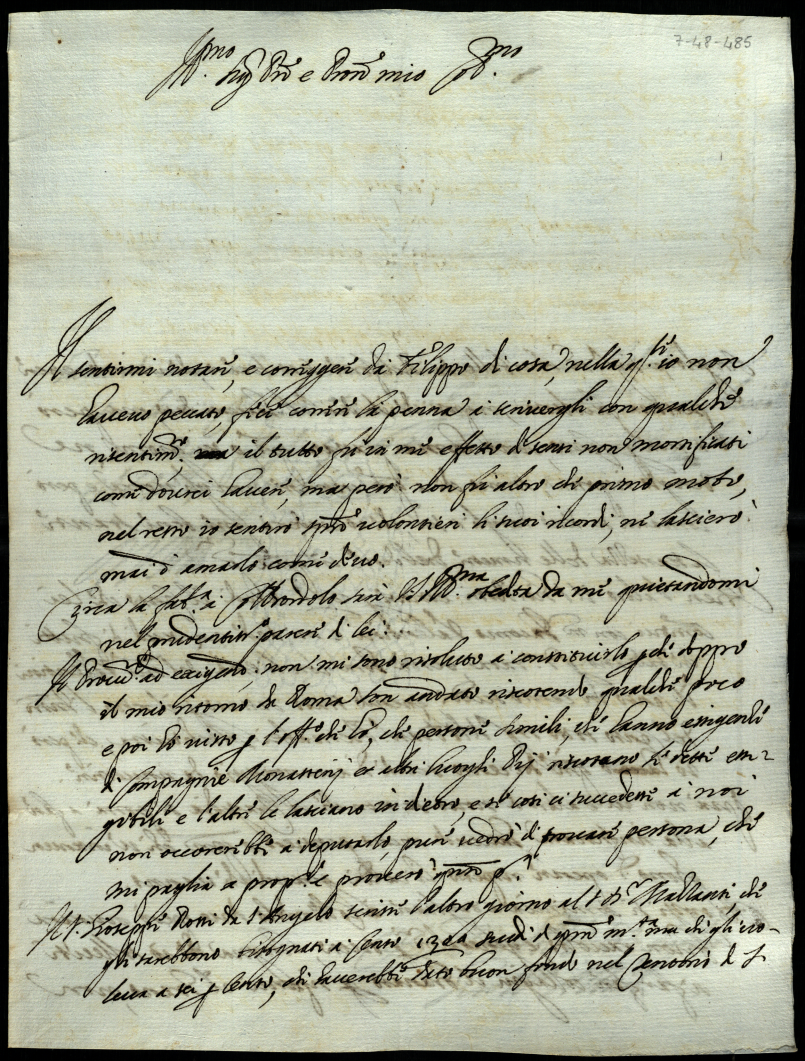 7-48-485
Ill.mo Sig.r Prõn e Prõn mio Ob.mo
Il sentirmi notare, e correggere da Filippo di cosa, nella q.le io non
havevo peccato, fece correre la penna a scrivergli con qualche
risentim.to, il tutto fù in me effetto di sensi non mortificati
come dovrei havere, ma però non fù altro che primo moto,
nel resto io sentirò sempre volontieri li suoi ricordi, ne lascierò
mai d'amarlo come devo.
Circa la fab.a a sarà V.S. Ill.ma obedita da me quietandomi
nel prudentiss.o parere di lei.
Il Procur.re ad exigend. non mi sono risoluto a constituirlo perche doppo
il mio ritorno da Roma son andato riscotendo qualche poco
e poi hò visto per l'off.o che hò, che persone simili, che hanno essigenze
di Compagnie Monasterij et altri luoghi Pij riscotano li debiti essi-
gibili e l'altre le lasciano indietro, e se così ci succedesse a noi
non occorerebbe a deputarlo, pure vedrò di trovare persona, che
mi paglia a prop.o e proverò
Il S. Gioseppe Rossi da S. Angelo scrisse l'altro giorno al S. Mattanti, che
gli sarebbono bisognati a Censo 1300 scudi di m.ta ma che gli vo-
leva a sei per Cento, che haverebbe dato buon fondo nel di S.